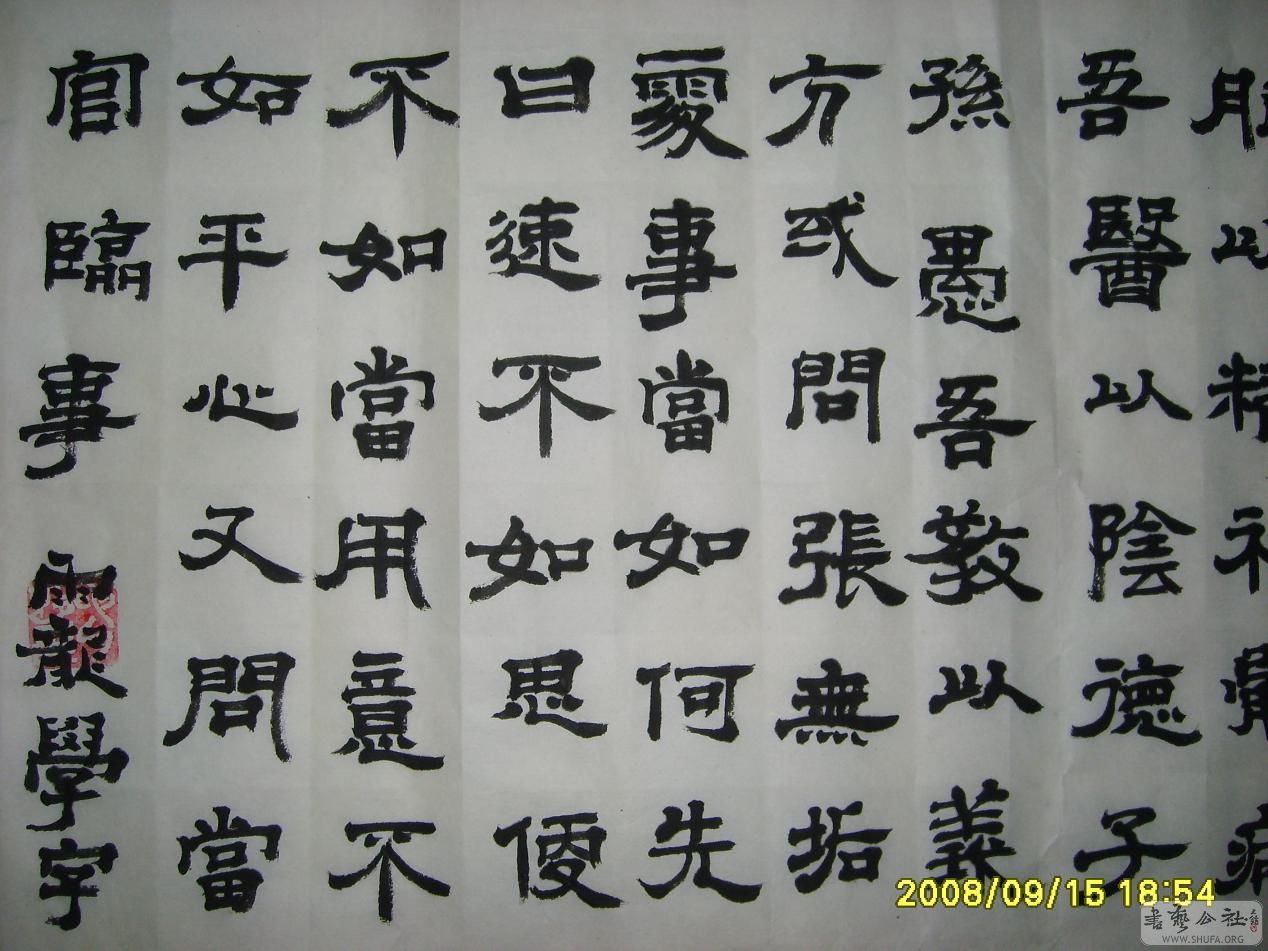 精
吾醫以陰德子
孫愚吾教以義
方或問張無垢
處事當如何先
曰速不如思便
不如當用意不
如平心又問當
官臨事 雨龍學字
2008/09/15 18:54
書藝公社
WWW.SHUFA.ORG